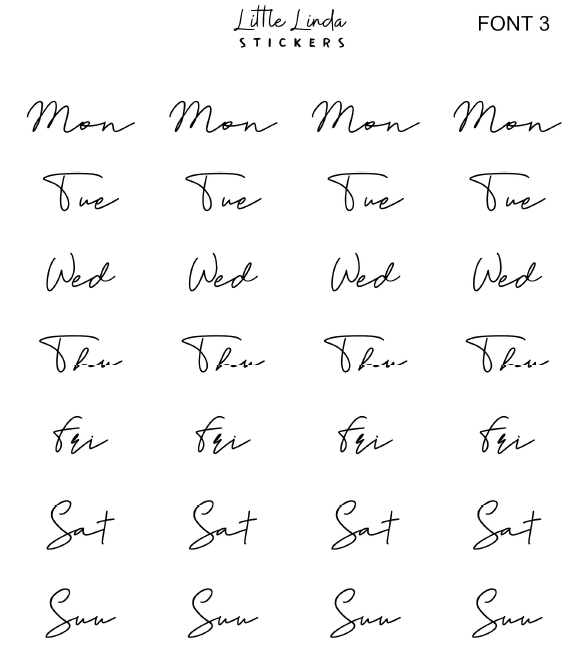 Little Linda
STICKERS
FONT 3
Mon Mon Mon Mon
Tue Tue Tue Tue
Wed Wed Wed Wed
Thu Thu Thu Thu
Fri Fri Fri Fri
Sat Sat Sat Sat
Sun Sun Sun Sun